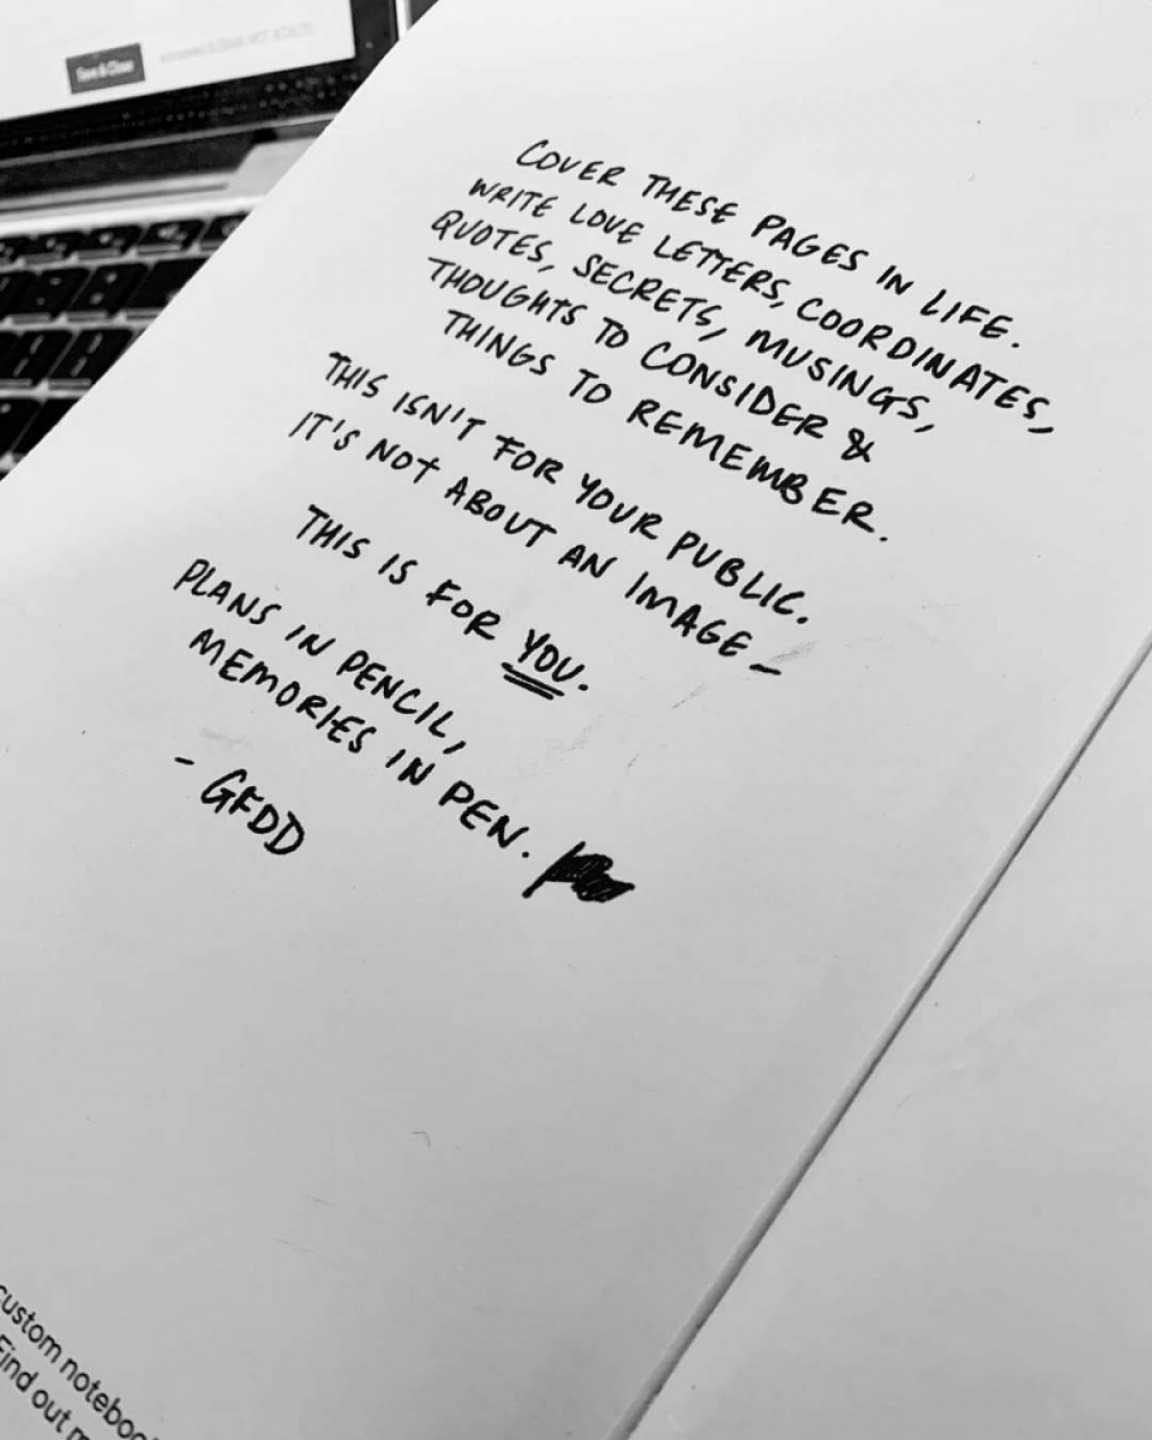 Save & Close
COVER THESE PAGES IN LIFE.
WRITE LOVE LETTERS, COORDINATES,
QUOTES, SECRETS, MUSINGS,
THOUGHTS TO CONSIDER &
THINGS TO REMEMBER.
THIS ISN'T FOR YOUR PUBLIC.
IT'S NOT ABOUT AN IMAGE -
THIS IS FOR YOU.
PLANS IN PENCIL,
MEMORIES IN PEN.
- GFDD
custom noteboo
Find out m